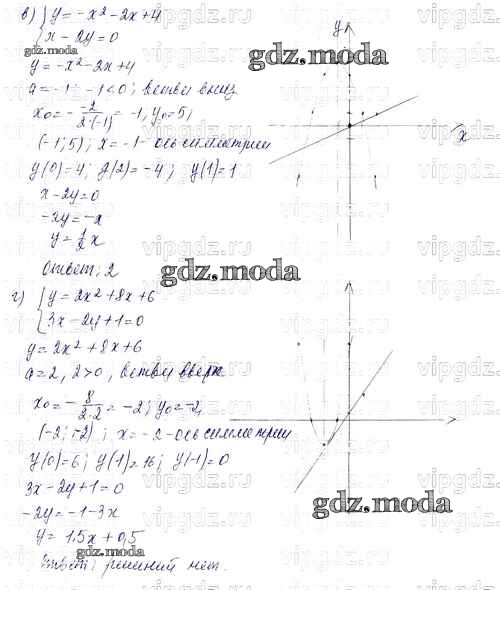 в) { y = -x² - 2x + 4
x - 2y = 0
y = -x² - 2x + 4
a = -1; -1 < 0; ветви вниз
x₀ = - -2/2·(-1) = -1, y₀ = 5;
(-1; 5); x = -1 - ось симметрии
y(0) = 4; y(2) = -4; y(1) = 1
x - 2y = 0
-2y = -x
y = 1/2 x
Ответ: 2
г) { y = 2x² + 8x + 6
3x - 2y + 1 = 0
y = 2x² + 8x + 6
a = 2, 2 > 0, ветви вверх
x₀ = - 8/2·2 = -2; y₀ = -2,
(-2; -2); x = -2 - ось симметрии
y(0) = 6; y(1) = 16; y(-1) = 0
3x - 2y + 1 = 0
-2y = -1 - 3x
y = 1,5x + 0,5
Ответ: решений нет.
y
x
gdz.moda
gdz.moda
gdz.moda
gdz.moda
gdz.moda
vipgdz.ru